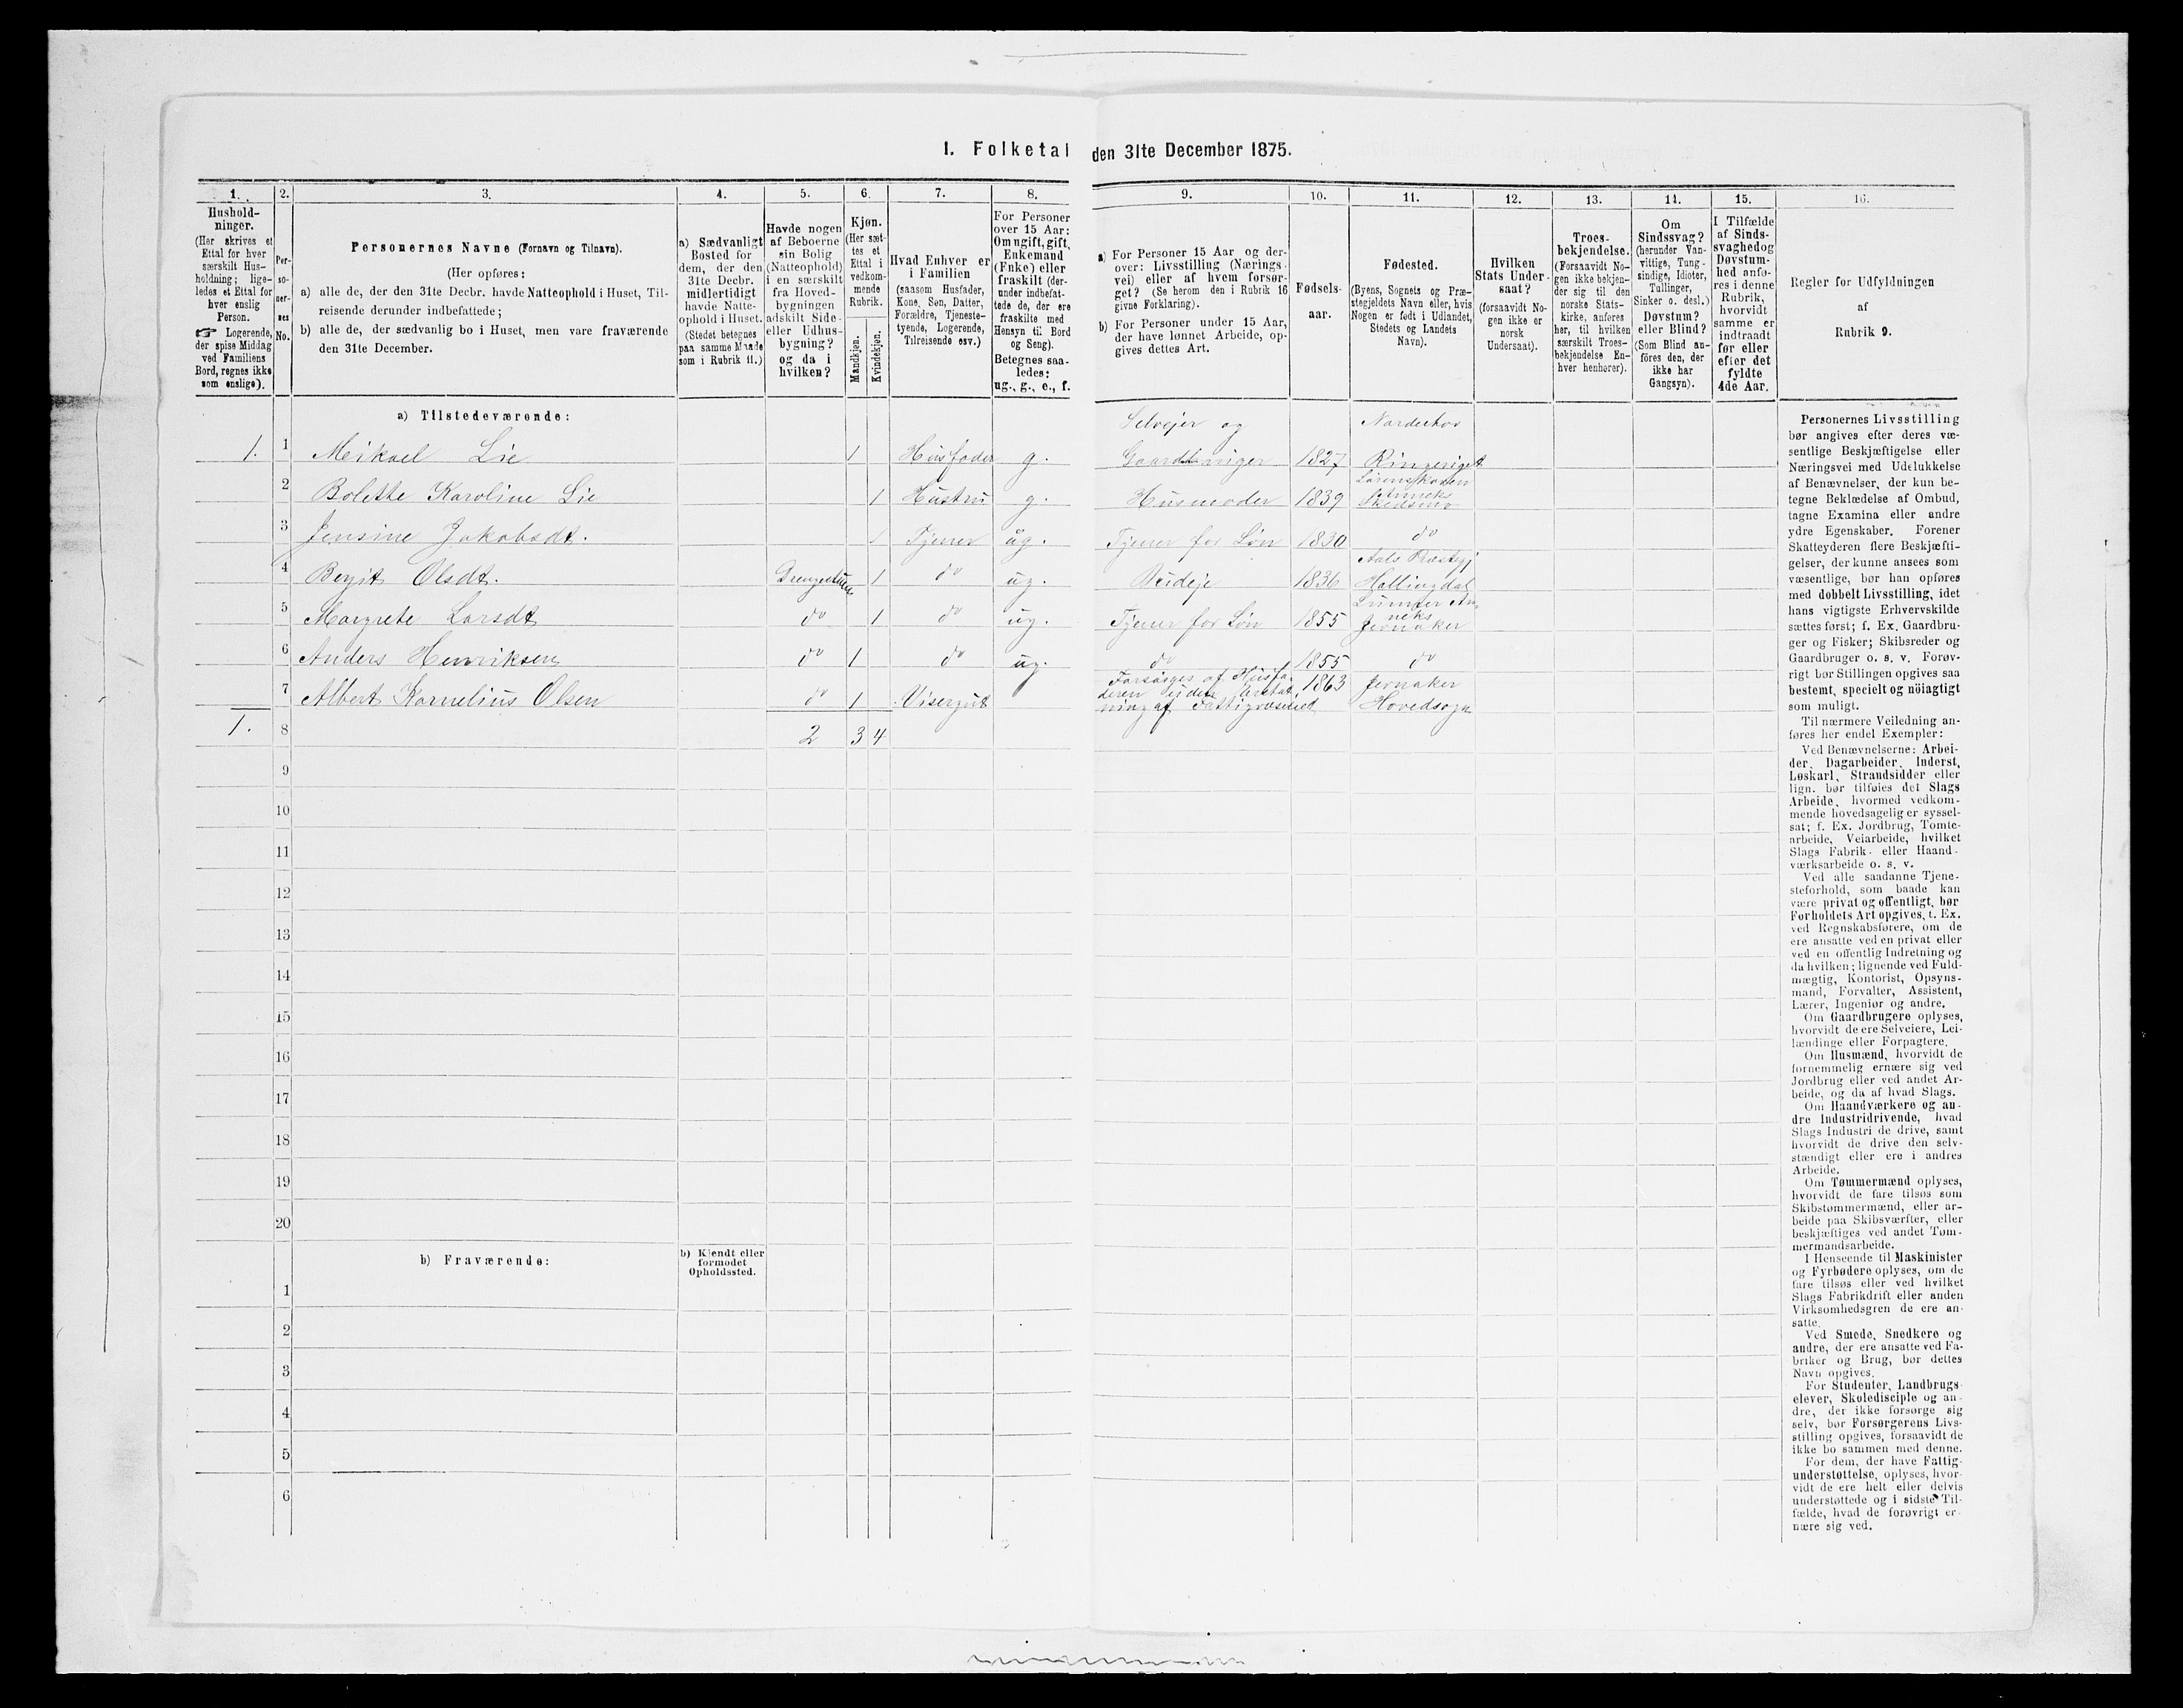 I. Folketal den 31te December 1875.
1. 2. 3. 4. 5. 6. 7. 8. 9. 10. 11. 12. 13. 14. 15. 16.
Hushold-
ninger.
(Her skrives et
Ettal for hver
særskilt Hus-
holdning; lige-
ledes et Ettal for
hver enslig
Person.
☞ Logerende,
der spise Middag
ved Familiens
Bord, regnes ikke
som enslige).
Per-
so-
ner-
nes
No.
Personernes Navne (Fornavn og Tilnavn).
(Her opføres:
a) alle de, der den 31te Decbr. havde Natteophold i Huset, Til-
reisende derunder indbefattede;
b) alle de, der sædvanlig bo i Huset, men vare fraværende
den 31te December.
a) Sædvanligt
Bosted for
dem, der den
31te Decbr.
midlertidigt
havde Natte-
ophold i Huset.
(Stedet betegnes
paa samme Maade
som i Rubrik 11.)
Havde nogen
af Beboerne
sin Bolig
(Natteophold)
i en særskilt
fra Hoved-
bygningen
adskilt Side-
eller Udhus-
bygning?
og da i
hvilken?
Kjøn.
(Her sæt-
tes et
Ettal i
vedkom-
mende
Rubrik.
Mandkjøn.
Kvindekjøn.
Hvad Enhver er
i Familien
(saasom Husfader,
Kone, Søn, Datter,
Forældre, Tjeneste-
tyende, Logerende,
Tilreisende osv.)
For Personer
over 15 Aar:
Om ugift, gift,
Enkemand
(Enke) eller
fraskilt (der-
under indbefat-
tede de, der ere
fraskilte med
Hensyn til Bord
og Seng).
Betegnes saa-
ledes:
ug., g., e., f.
a) For Personer 15 Aar og der-
over: Livsstilling (Nærings-
vei) eller af hvem forsør-
get? (Se herom den i Rubrik 16
givne Forklaring).
b) For Personer under 15 Aar,
der have lønnet Arbeide, op-
gives dettes Art.
Fødsels-
aar.
Fødested.
(Byens, Sognets og Præ-
stegjeldets Navn eller, hvis
Nogen er født i Udlandet,
Stedets og Landets
Navn).
Hvilken
Stats Under-
saat?
(forsaavidt No-
gen ikke er
norsk
Undersaat).
Troes-
bekjendelse.
(Forsaavidt No-
gen ikke bekjen-
der sig til den
norske Stats-
kirke, anføres
her, til hvilken
særskilt Troes-
bekjendelse En-
hver henhører).
Om
Sindssvag?
(herunder Van-
vittige, Tung-
sindige, Idioter,
Tullinger,
Sinker o. desl.)
Døvstum?
eller Blind?
(Som Blind an-
föres den, der
ikke har
Gangsyn).
I Tilfælde
af Sinds-
svaghed og
Døvstum-
hed anfø-
res i denne
Rubrik,
hvorvidt
samme er
indtraadt
før eller
efter det
fyldte
4de Aar.
Regler for Udfyldningen
af
Rubrik 9.
a) Tilstedeværende:
1. 1 Meikael Lie 1 Husfader g. Selvejer og Gaardbruger 1827 Norderhov Ringeriget
2 Bolette Karoline Lie 1 Hustru g. Husmoder 1839 Lørenskoven Anneks Skedsmo
3 Jensine Jakobsdt. 1 Tjener ug. Tjener for Løn 1830 do
4 Bergit Olsdt. Drengestuen 1 do ug. Budeje 1836 Aals Præstegj Hallingdal
5 Margrete Larsdt do 1 do ug. Tjener for Løn 1855 Lunner Anneks Jevnaker
6 Anders Henriksen do 1 do ug. do 1855 do
7 Albert Kornelius Olsen do 1 Visergut Forsørges af Husfaderen uden Erstatning af Fattigvæsenet 1863 Jevnaker Hovedsogn
1. 8 2 3 4
9
10
11
12
13
14
15
16
17
18
19
20
b) Fraværende:
b) Kjendt eller
formodet
Opholdssted.
1
2
3
4
5
6
Personernes Livsstilling
bør angives efter deres væ-
sentlige Beskjæftigelse eller
Næringsvei med Udelukkelse
af Benævnelser, der kun be-
tegne Beklædelse af Ombud,
tagne Examina eller andre
ydre Egenskaber. Forener
Skatteyderen flere Beskjæfti-
gelser, der kunne ansees som
væsentlige, bør han opføres
med dobbelt Livsstilling, idet
hans vigtigste Erhvervskilde
sættes først; f. Ex. Gaardbru-
ger og Fisker; Skibsreder og
Gaardbruger o. s. v. Forøv-
rigt bør Stillingen opgives saa
bestemt, specielt og nöiagtigt
som muligt.
Til nærmere Veiledning an-
føres her endel Exempler:
Ved Benævnelserne: Arbei-
der, Dagarbeider, Inderst,
Løskarl, Strandsidder eller
lign. bør tilføies det Slags
Arbeide, hvormed vedkom-
mende hovedsagelig er syssel-
sat; f. Ex. Jordbrug, Tomte-
arbeide, Veiarbeide, hvilket
Slags Fabrik- eller Haand-
værksarbeide o. s. v.
Ved alle saadanne Tjene-
steforhold, som baade kan
være privat og offentligt, bør
Forholdets Art opgives, t. Ex.
ved Regnskabsførere, om de
ere ansatte ved en privat eller
ved en offentlig Indretning og
da hvilken; lignende ved Fuld-
mægtig, Kontorist, Opsyns-
mand, Forvalter, Assistent,
Lærer, Ingeniør og andre.
Om Gaardbrugere oplyses,
hvorvidt de ere Selveiere, Lei-
lændinge eller Forpagtere.
Om Husmænd, hvorvidt de
fornemmelig ernære sig ved
Jordbrug eller ved andet Ar-
beide, og da af hvad Slags.
Om Haandværkere og an-
dre Industridrivende, hvad
Slags Industri de drive, samt
hvorvidt de drive den selv-
stændigt eller ere i andres
Arbeide.
Om Tømmermænd oplyses,
hvorvidt de fare tilsøs som
Skibstømmermænd, eller ar-
beide paa Skibsværfter, eller
beskjæftiges ved andet Tøm-
mermandsarbeide.
I Henseende til Maskinister
og Fyrbødere oplyses, om de
fare tilsøs eller ved hvilket
Slags Fabrikdrift eller anden
Virksomhedsgren de ere an-
satte.
Ved Smede, Snedkere og
andre, der ere ansatte ved Fa-
briker og Brug, bør dettes
Navn opgives.
For Studenter, Landbrugs-
elever, Skoledisciple og an-
dre, der ikke forsørge sig
selv, bør Forsørgerens Livs-
stilling opgives, forsaavidt de
ikke bo sammen med denne.
For dem, der have Fattig-
understøttelse, oplyses, hvor-
vidt de ere helt eller delvis
understøttede og i sidste Til-
fælde, hvad de forøvrigt er-
nære sig ved.